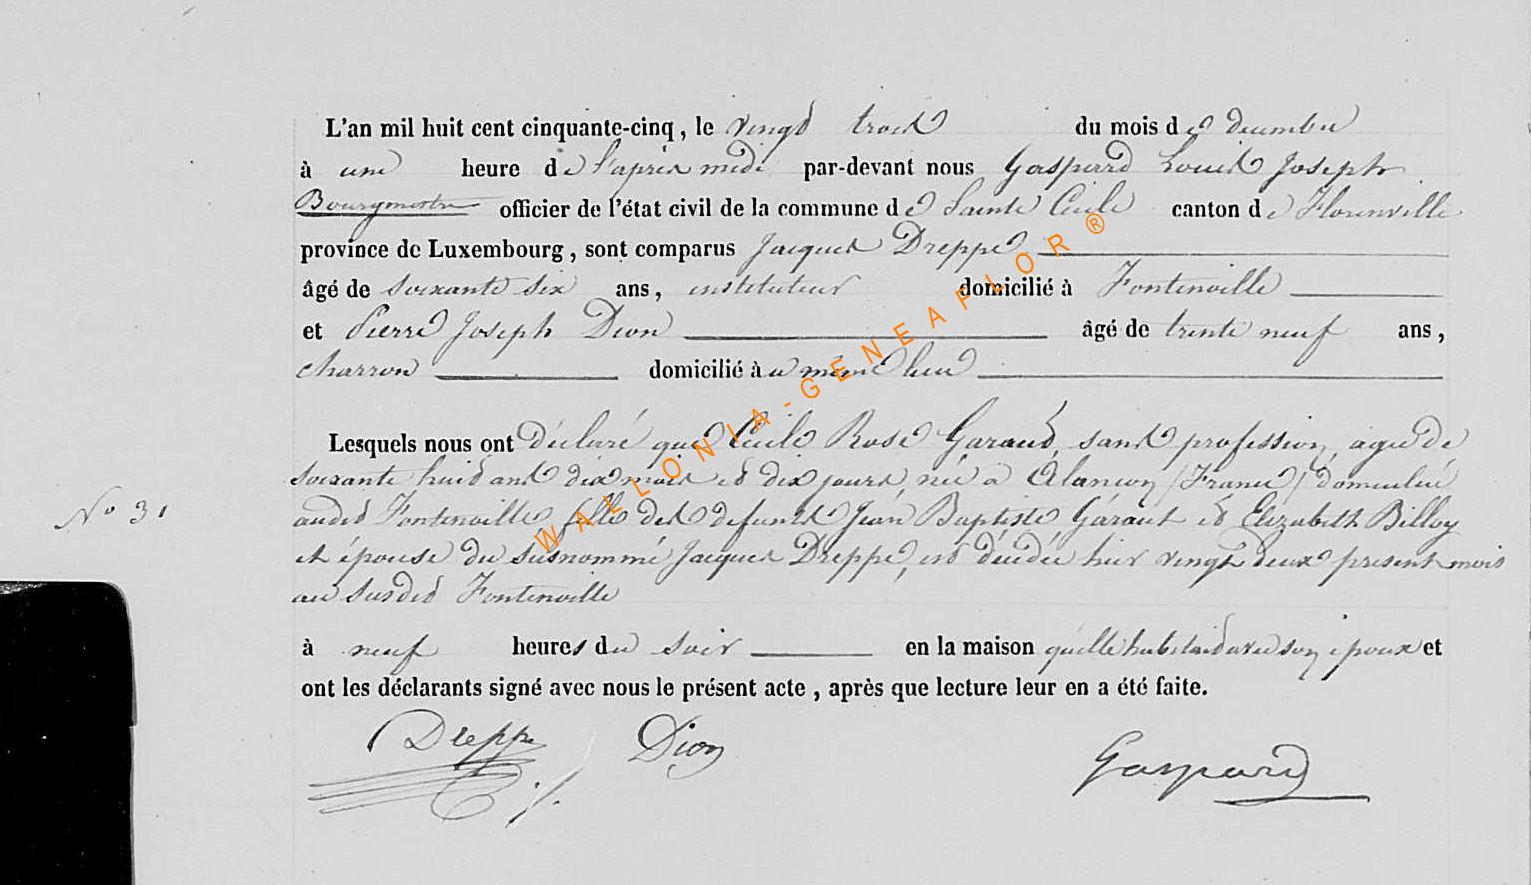 L'an mil huit cent cinquante-cinq, le vingt trois du mois de décembre
à une heure de l'après midi par-devant nous Gaspard Louis Joseph
Bourgmestre officier de l'état civil de la commune de Sainte Cécile canton de Florenville
province de Luxembourg, sont comparus Jacques Dreppe
âgé de soixante six ans, instituteur domicilié à Fontenoille
et Pierre Joseph Dion âgé de trente neuf ans,
charron domicilié au même lieu
Lesquels nous ont déclaré que Cécile Rose Garaut, sans profession, agée de
soixante huit ans dix mois et dix jours, née à Alançon (France) domiciliée
audit Fontenoille fille des défunts Jean Baptiste Garaut et Elizabeth Billoy
N° 31
et épouse du susnommé Jacques Dreppe, est décédée hier vingt deux présent mois
au susdit Fontenoille
à neuf heures du soir en la maison qu'elle habitait avec son époux et
ont les déclarants signé avec nous le présent acte, après que lecture leur en a été faite.
Dreppe Dion Gaspard
WALLONIA-GENEAFLOR®